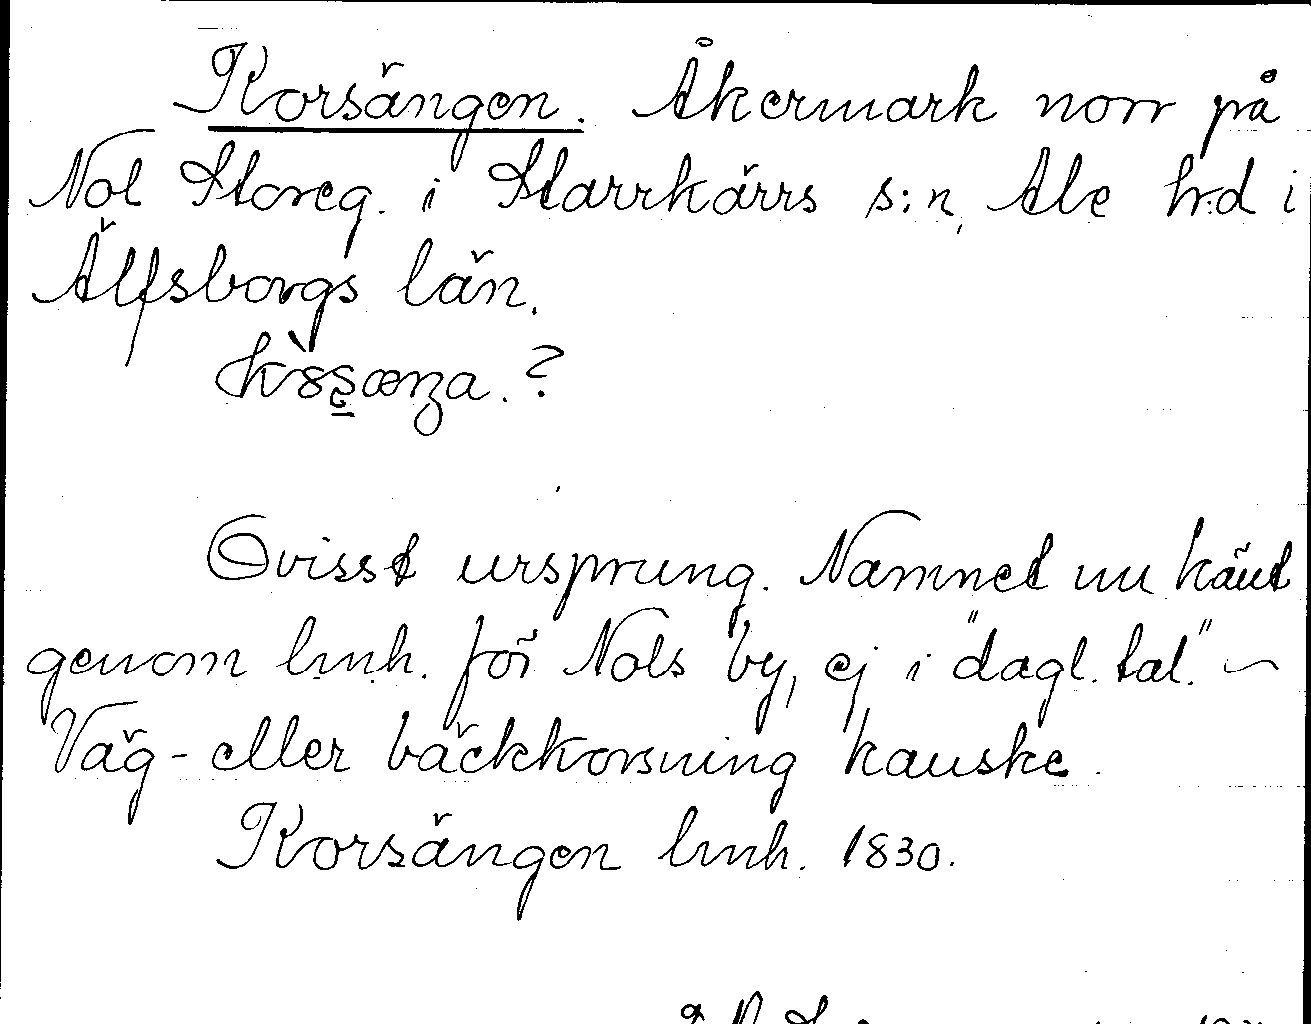 Korsängen. Åkermark norr på
Nol Storeg. i Starrkärrs s:n, Ale h:d i
Älfsborgs län.
Ovisst ursprung. Namnet nu känt
genom lmh. för Nols by, ej i "dagl. tal." –
Väg- eller bäckkorsning kanske.
Korsängen lmh. 1830.